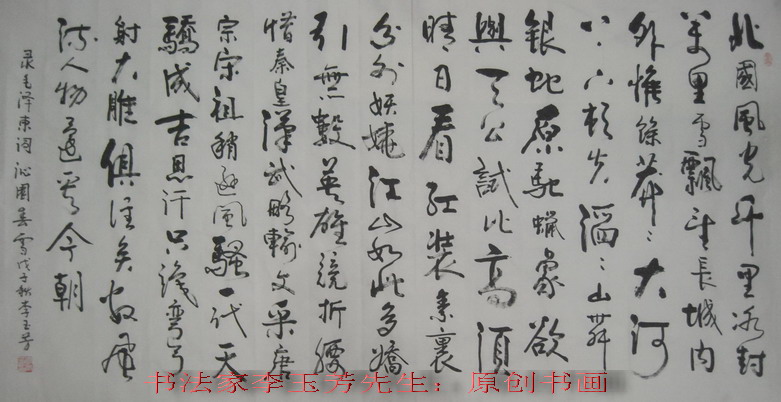 北國風光千里冰封
萬里雪飄望長城内
外惟餘莽〻大河
上下頓失滔〻山舞
銀蛇原馳蜡象欲
與天公試比高須
晴日看紅装素裹
分外妖嬈江山如此多嬌
引無數英雄競折腰
惜秦皇漢武略輸文采唐
宗宋祖稍遜風騷一代天
驕成吉思汗只識彎弓
射大雕俱往矣数風
流人物還看今朝
录毛泽東词沁園春雪戊子秋李玉芳
书法家李玉芳先生：原创书画